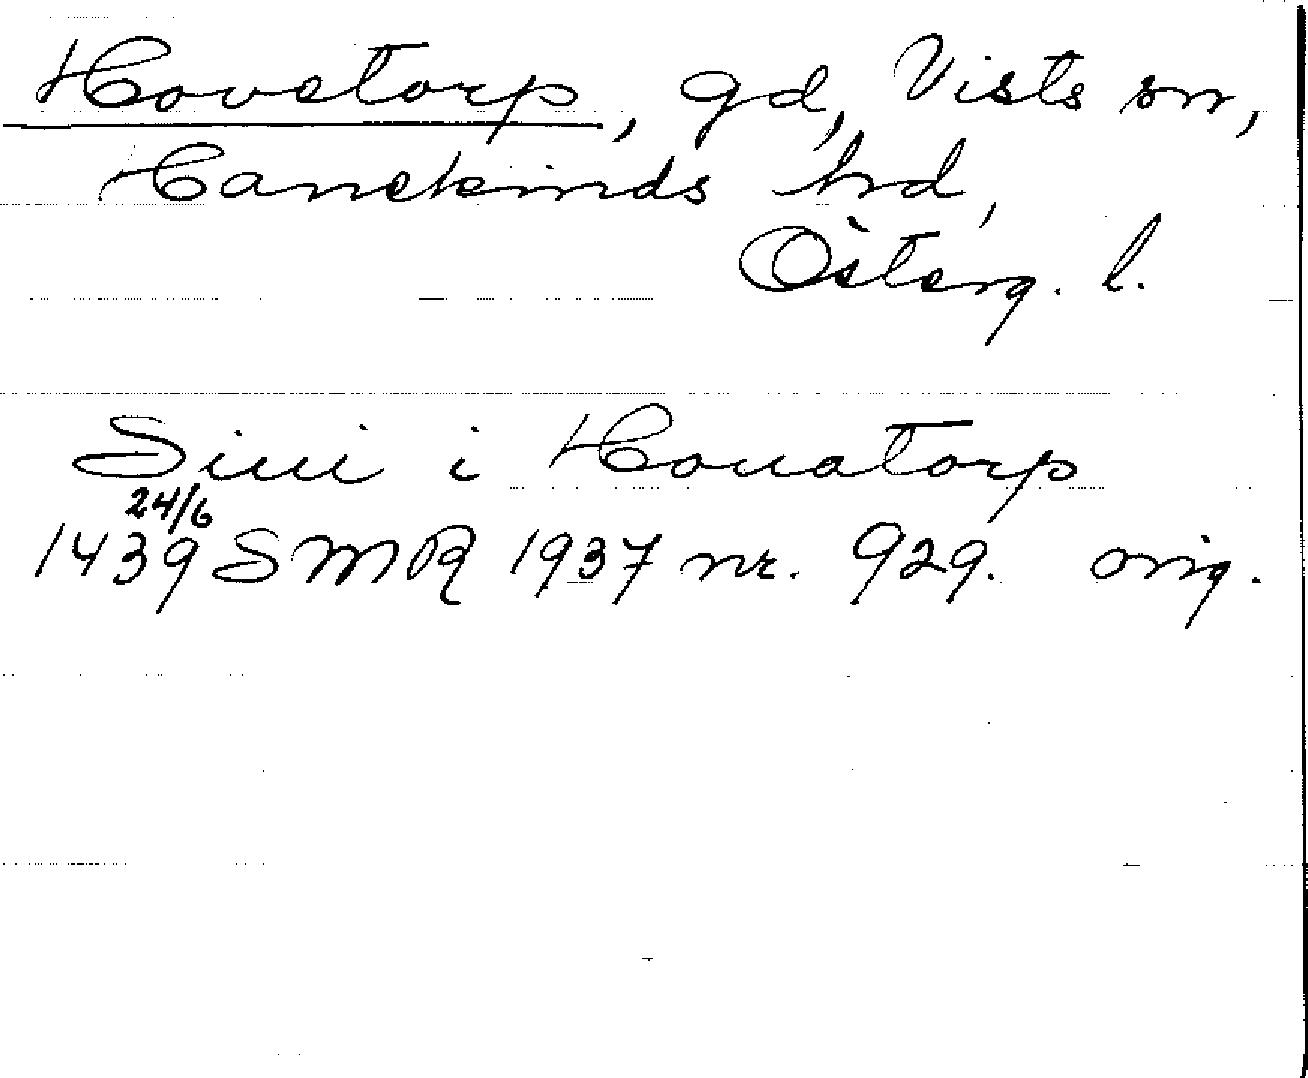 Hovetorp, gd, Vists sn,
Hanekinds hd,
Österg. l.
Siui i Houatorp
24/6
1439 SMR 1937 nr. 929. orig.